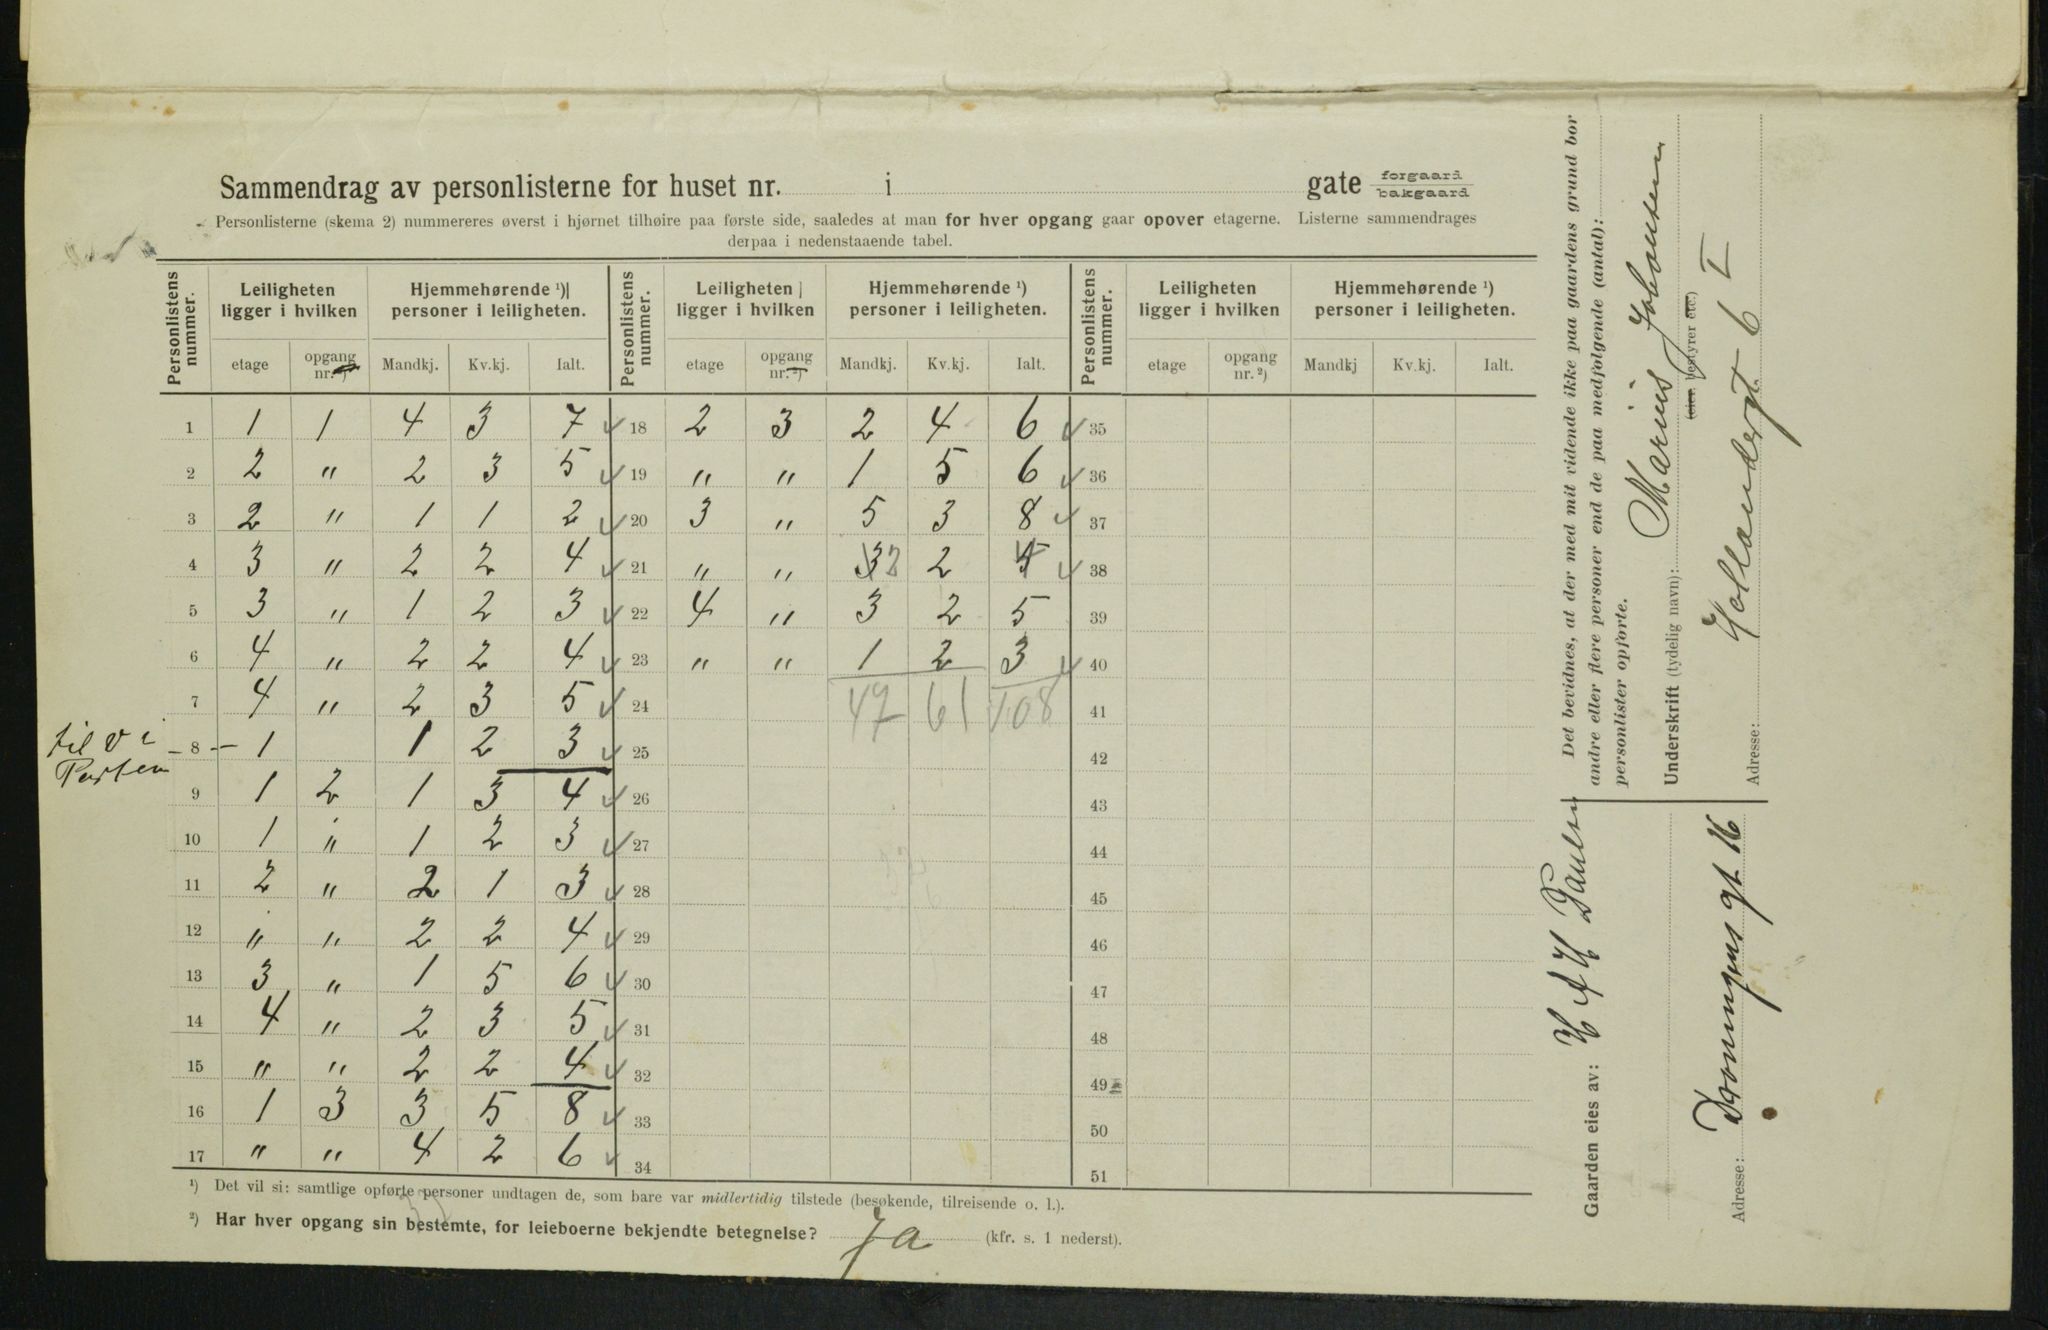 Sammendrag av personlisterne for huset nr. i gate forgaard bakgaard
Personlisterne (skema 2) nummereres øverst i hjørnet tilhøire paa første side, saaledes at man for hver opgang gaar opover etagerne. Listerne sammendrages
derpaa i nedenstaaende tabel.
Personlistens nummer. Leiligheten ligger i hvilken Hjemmehørende ¹) personer i leiligheten. Personlistens nummer. Leiligheten ligger i hvilken Hjemmehørende ¹) personer i leiligheten. Personlistens nummer. Leiligheten ligger i hvilken Hjemmehørende ¹) personer i leiligheten.
etage opgang nr. ²) Mandkj. Kv.kj. Ialt. etage opgang nr. ²) Mandkj. Kv.kj. Ialt. etage opgang nr. ²) Mandkj Kv.kj. Ialt.
1 1 1 4 3 7 18 2 3 2 4 6 35
2 2 " 2 3 5 19 " " 1 5 6 36
3 2 " 1 1 2 20 3 " 5 3 8 37
4 3 " 2 2 4 21 " " 3 2 2 4 38
5 3 " 1 2 3 22 4 " 3 2 5 39
6 4 " 2 2 4 23 " " 1 2 3 40
7 4 " 2 3 5 24 47 61 108 41
til v i
Porten
8 1 1 2 3 25 42
9 1 2 1 3 4 26 43
10 1 " 1 2 3 27 44
11 2 " 2 1 3 28 45
12 " " 2 2 4 29 46
13 3 " 1 5 6 30 47
14 4 " 2 3 5 31 48
15 " " 2 2 4 32 49
16 1 3 3 5 8 33 50
17 " " 4 2 6 34 51
¹) Det vil si: samtlige opførte personer undtagen de, som bare var midlertidig tilstede (besøkende, tilreisende o. l.).
²) Har hver opgang sin bestemte, for leieboerne bekjendte betegnelse? Ja (kfr. s. 1 nederst).
Det bevidnes, at der med mit vidende ikke paa gaardens grund bor
andre eller flere personer end de paa medfølgende (antal):
personlister opførte.
Underskrift (tydelig navn): Marius Johansen
(eier, bestyrer etc.)
Adresse: Hollendergt 6 I
Gaarden eies av: H A H Paulsen
Adresse: Dronningensgt 16